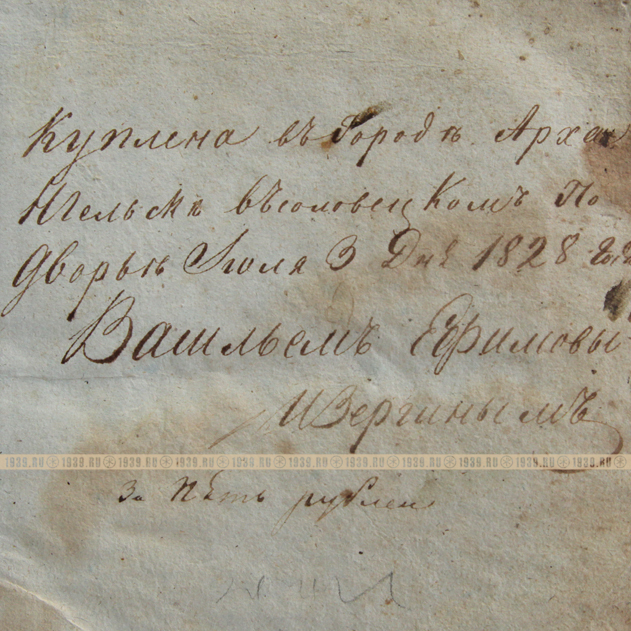 Куплена въ городѣ Арха
Нгельскѣ въсоловецКомъ По
Дворьѣ Іюля 3 Дня 1828 года
Васильемъ Ефимовы
Извергинымъ
1939.RU 1939.RU 1939.RU 1939.RU 1939.RU 1939.RU 1939.RU 1939.RU 1939.RU 1939.RU 1939.RU
За Пять рублей